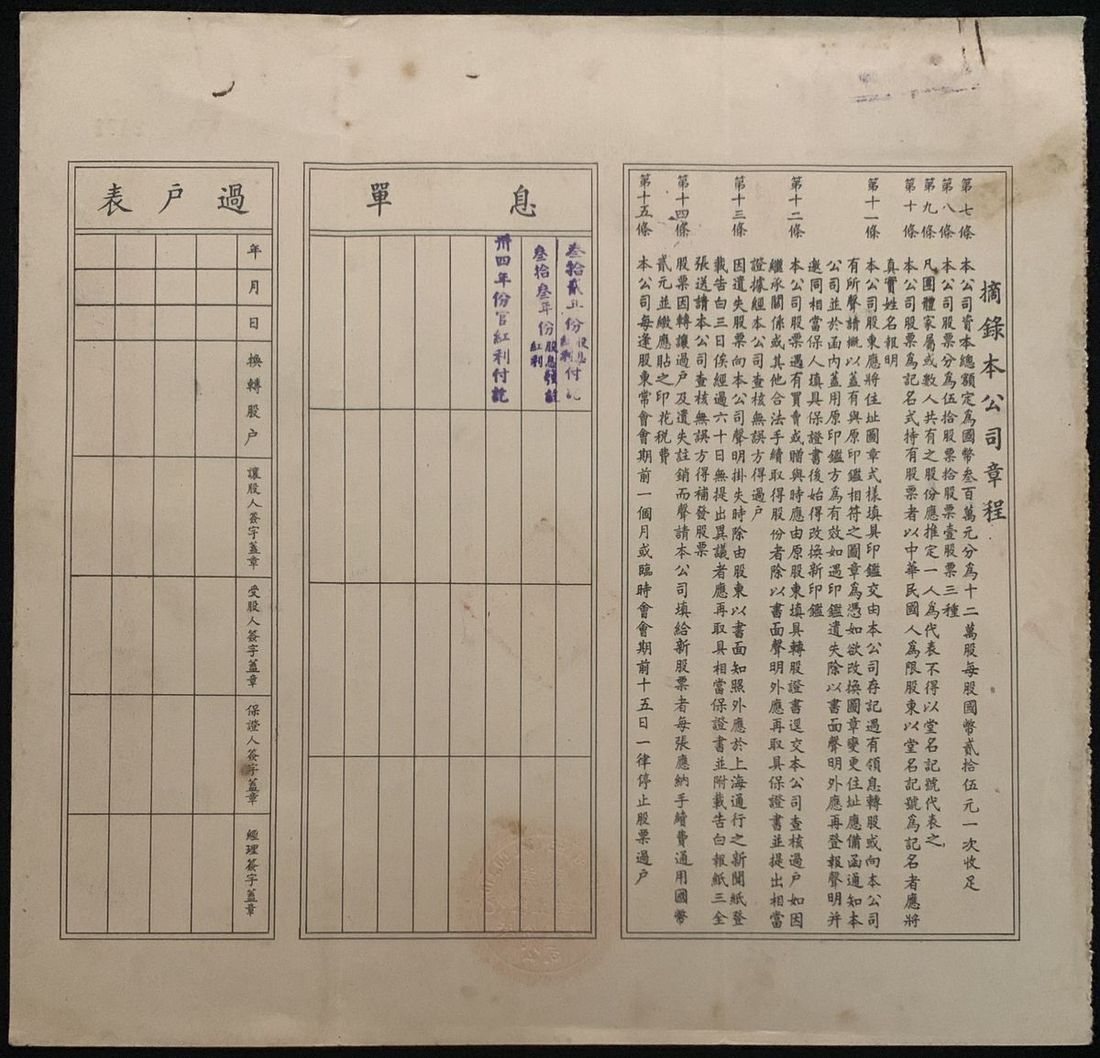 摘錄本公司章程
第七條 本公司資本總額定為國幣叁百萬元分為十二萬股每股國幣貳拾伍元一次收足
第八條 本公司股票分為伍拾股票拾股票壹股票三種
第九條 凡團體家屬或數人共有之股份應推定一人為代表不得以堂名記號代表之
第十條 本公司股票為記名式持有股票者以中華民國人為限股東以堂名記號為記名者應將
真實姓名報明
第十一條 本公司股東應將住址圖章式樣填具印鑑交由本公司存記遇有領息轉股或向本公司
有所聲請概以蓋有與原印鑑相符之圖章為憑如欲改換圖章變更住址應備函通知本
公司並於函內蓋用原印鑑方為有效如遇印鑑遺失除以書面聲明外應再登報聲明并
邀同相當保人填具保證書後始得改換新印鑑
第十二條 本公司股票遇有買賣或贈與時應由原股東填具轉股證書逕交本公司查核過戶如因
繼承關係或其他合法手續取得股份者除以書面聲明外應再取具保證書並提出相當
證據經本公司查核無誤方得過戶
第十三條 因遺失股票向本公司聲明掛失時除由股東以書面知照外應於上海通行之新聞紙登
載告白三日俟經過六十日無提出異議者應再取具相當保證書並附載告白報紙三全
張送請本公司查核無誤方得補發股票
第十四條 股票因轉讓過戶及遺失註銷而聲請本公司填給新股票者每張應納手續費通用國幣
貳元並繳應貼之印花稅費
第十五條 本公司每逢股東常會會期前一個月或臨時會會期前十五日一律停止股票過戶
息單
叁拾貳年份股息紅利付訖
叁拾叁年份股息紅利發訖
卅四年份官紅利付訖
過戶表
年
月
日
換轉股戶
讓股人簽字蓋章
受股人簽字蓋章
保證人簽字蓋章
經理簽字蓋章